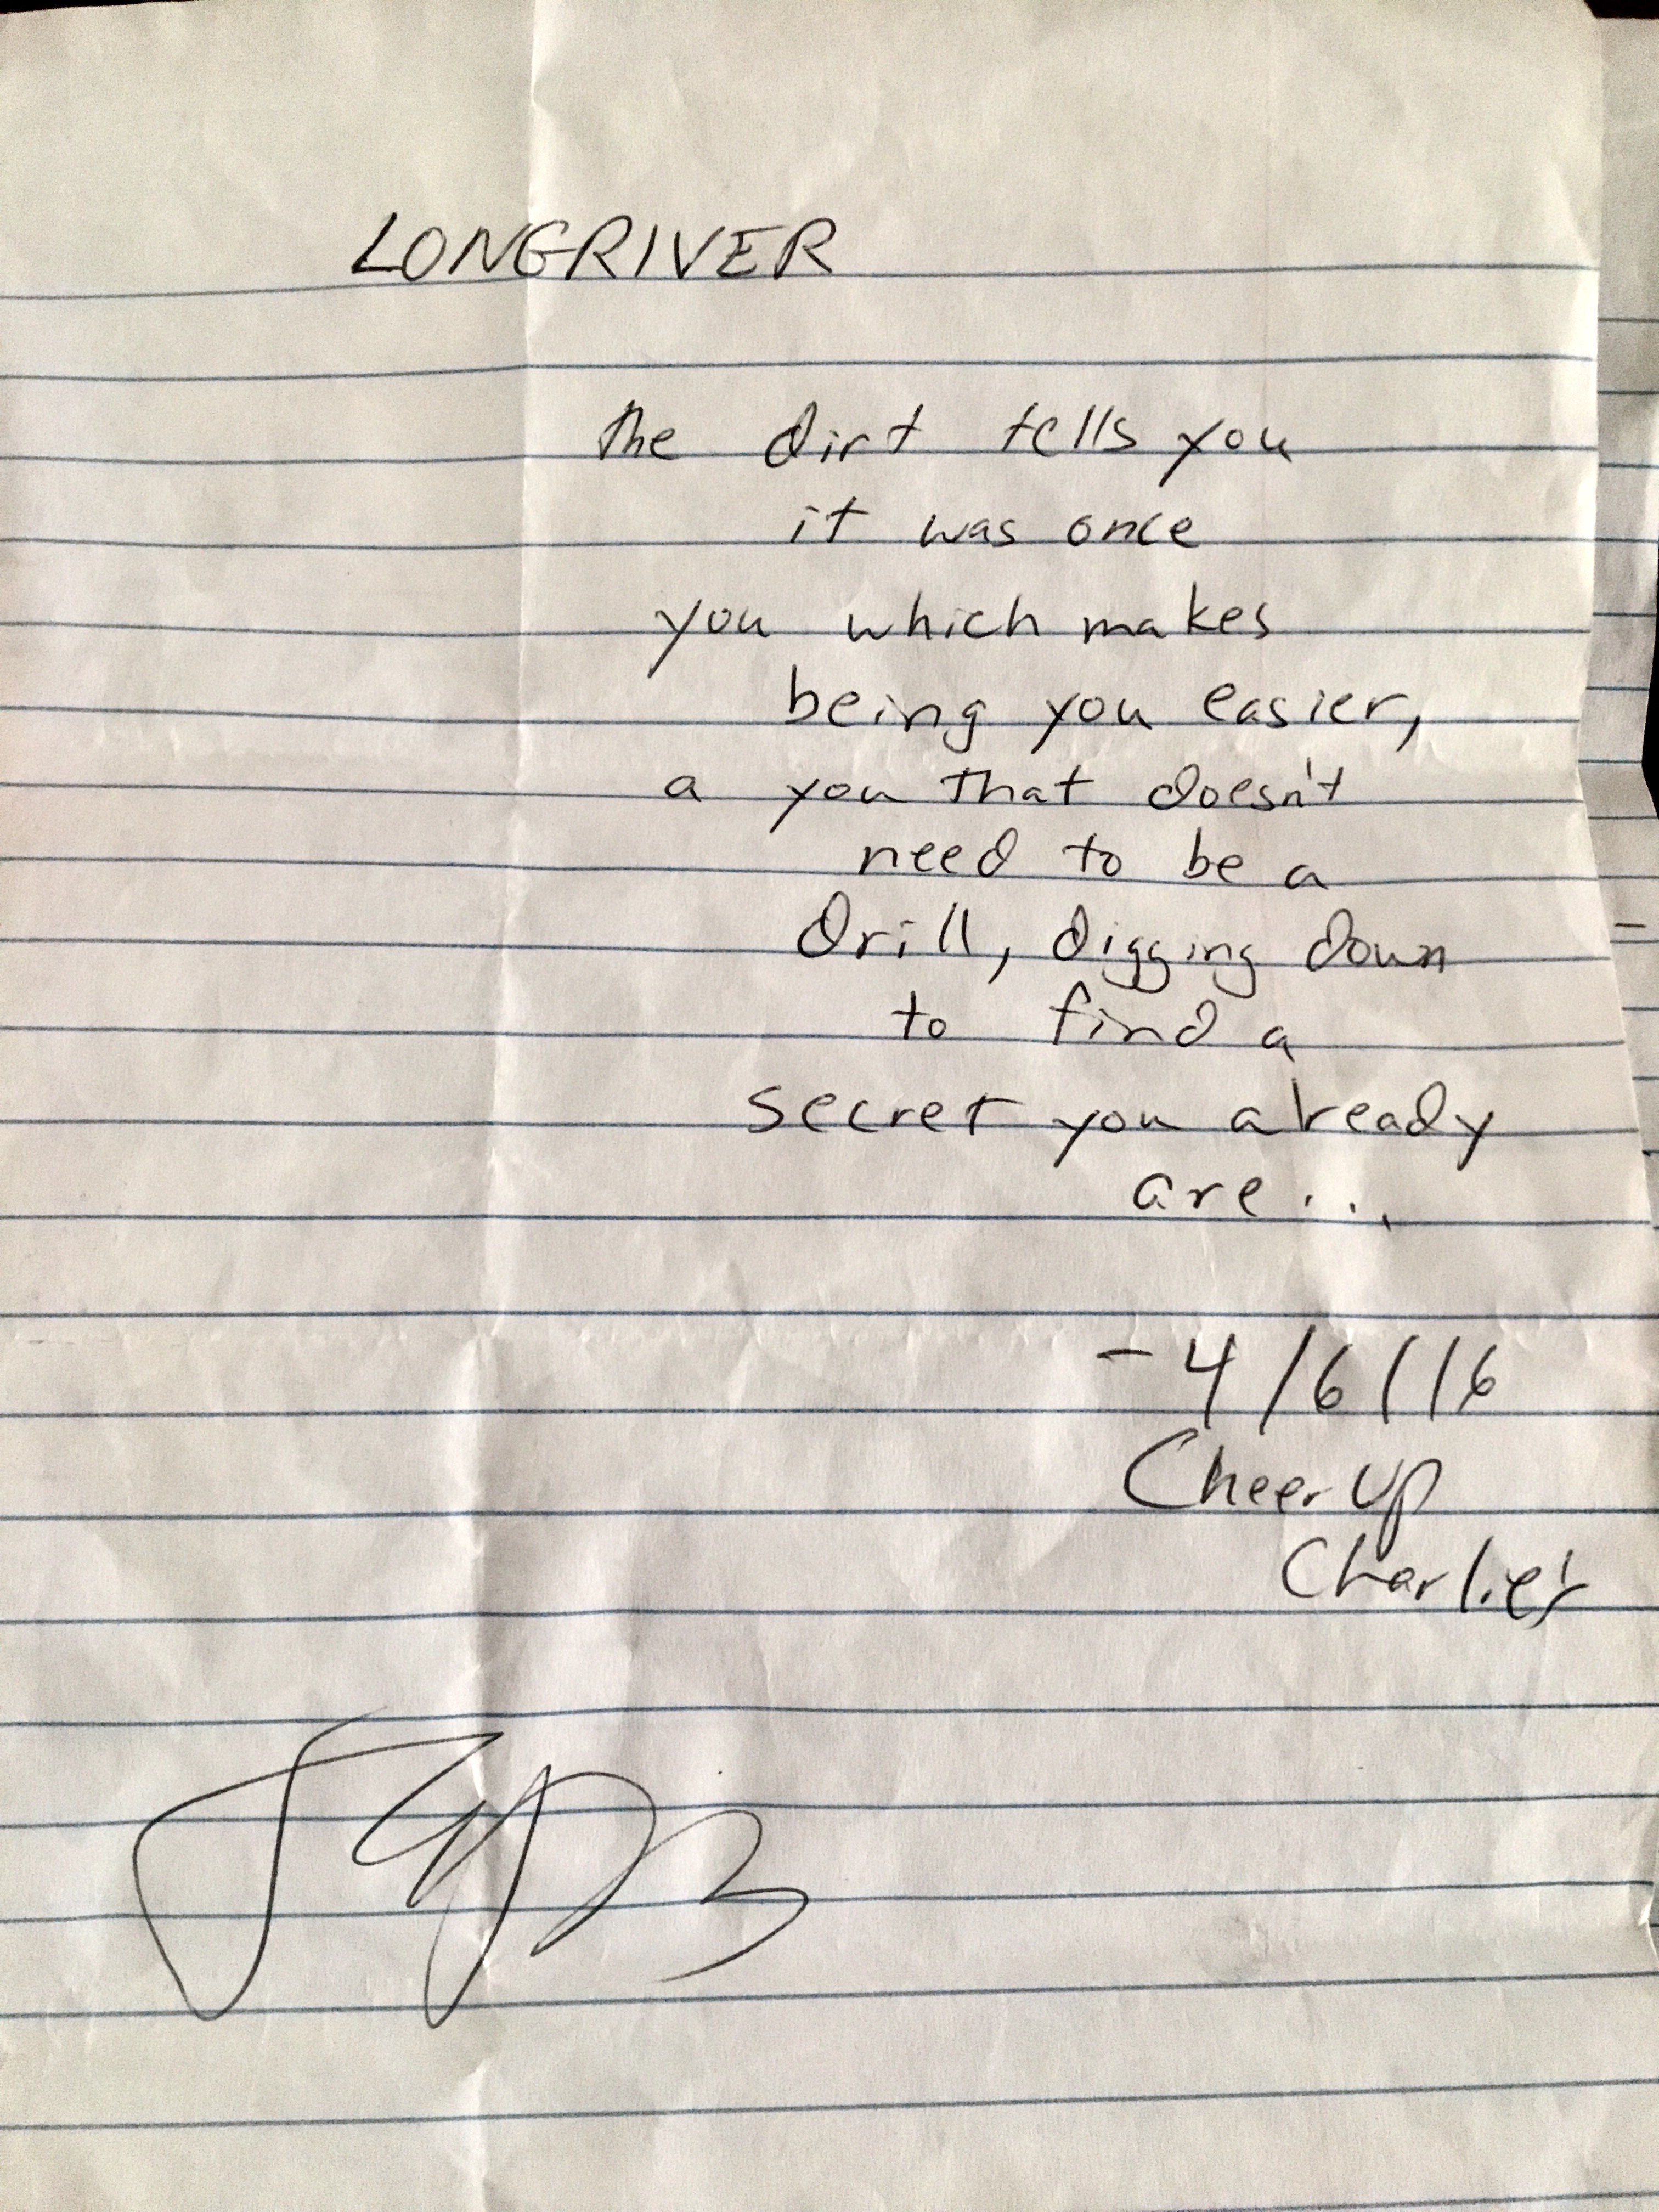 LONGRIVER
the dirt tells you
it was once
you which makes
being you easier,
a you that doesn't
need to be a
drill, digging down
to find a
secret you already
are...
- 4/6/16
Cheer Up
Charlie's